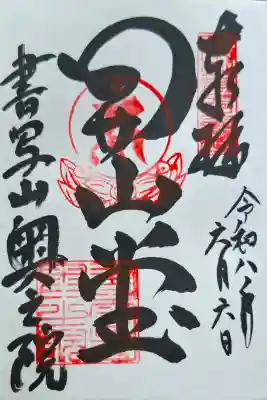 奉拝
令和八年
六月六日
開山堂
書写山奥之院